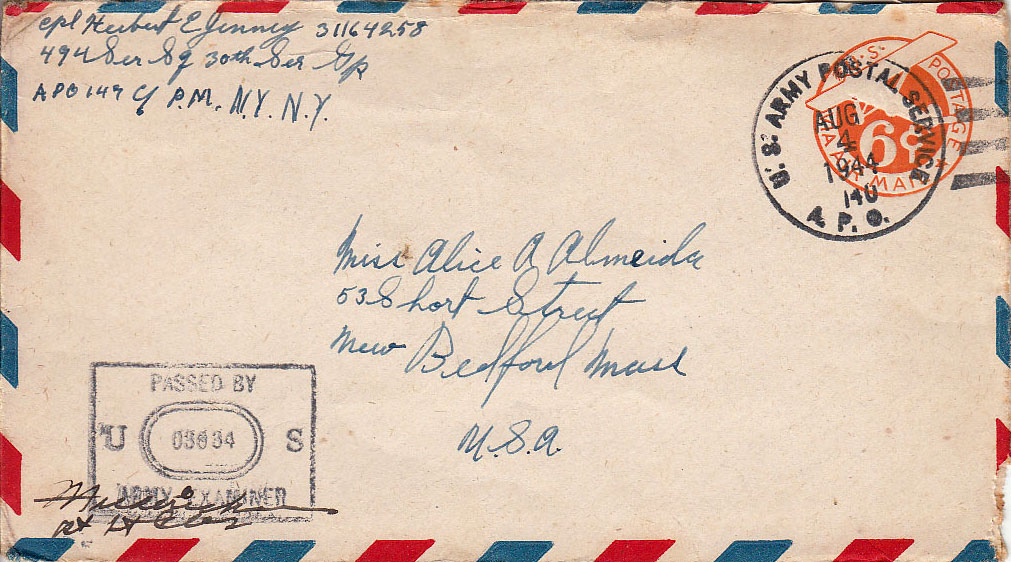 Cpl Herbert E Jenney 31164258
494 Ser Sq 30th Ser Gp
APO 149 c/ P.M. N.Y. N.Y.
U.S. POSTAGE
6¢
VIA AIR MAIL
U.S. ARMY POSTAL SERVICE
AUG
4
1944
140
A.P.O.
Miss Alice A Almeida
53 Short Street
New Bedford Mass
U.S.A.
PASSED BY
U S
ARMY EXAMINER